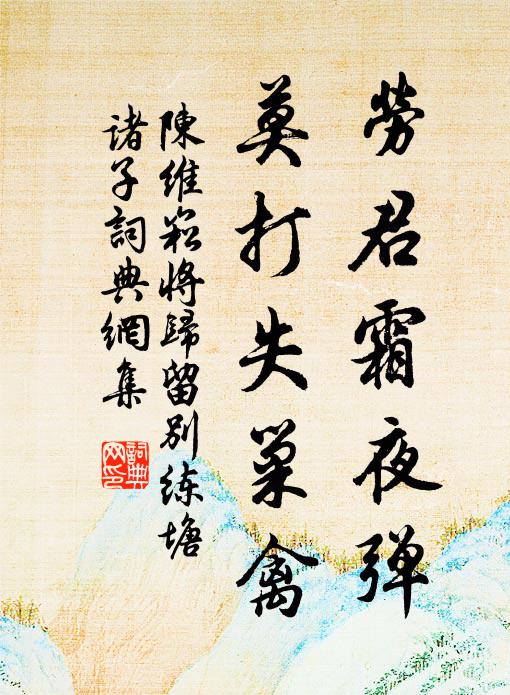 勞君霜夜弹
莫打失巢禽
陳維崧將歸留别练塘
诸子詞典網集
詞典
网印